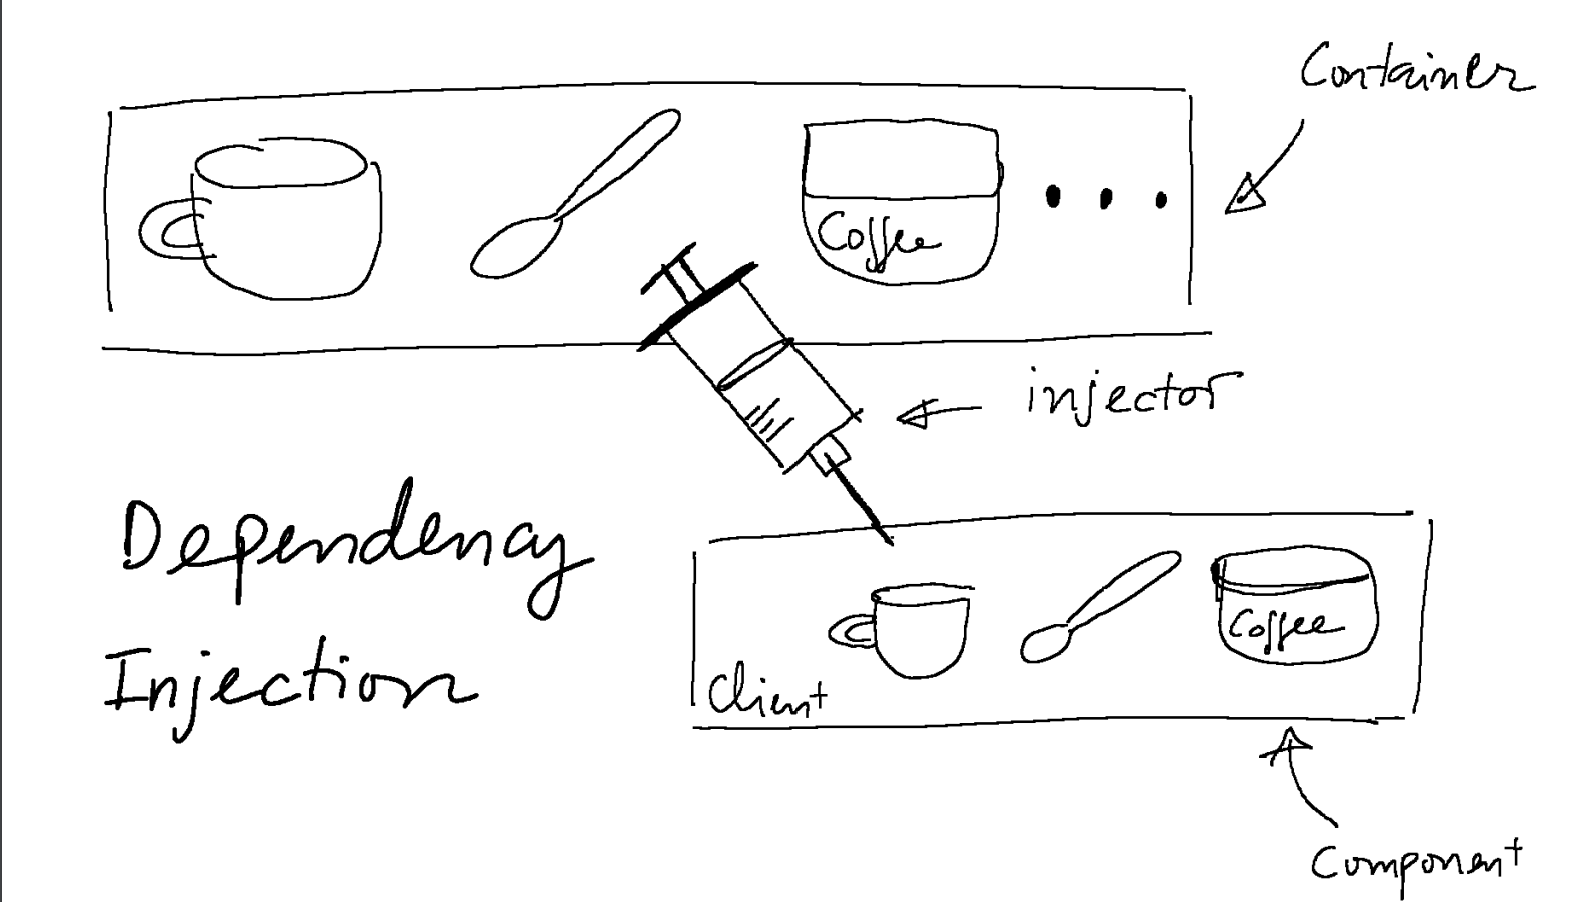 Container
Coffee
injector
Dependency
Injection
Coffee
Client
Component